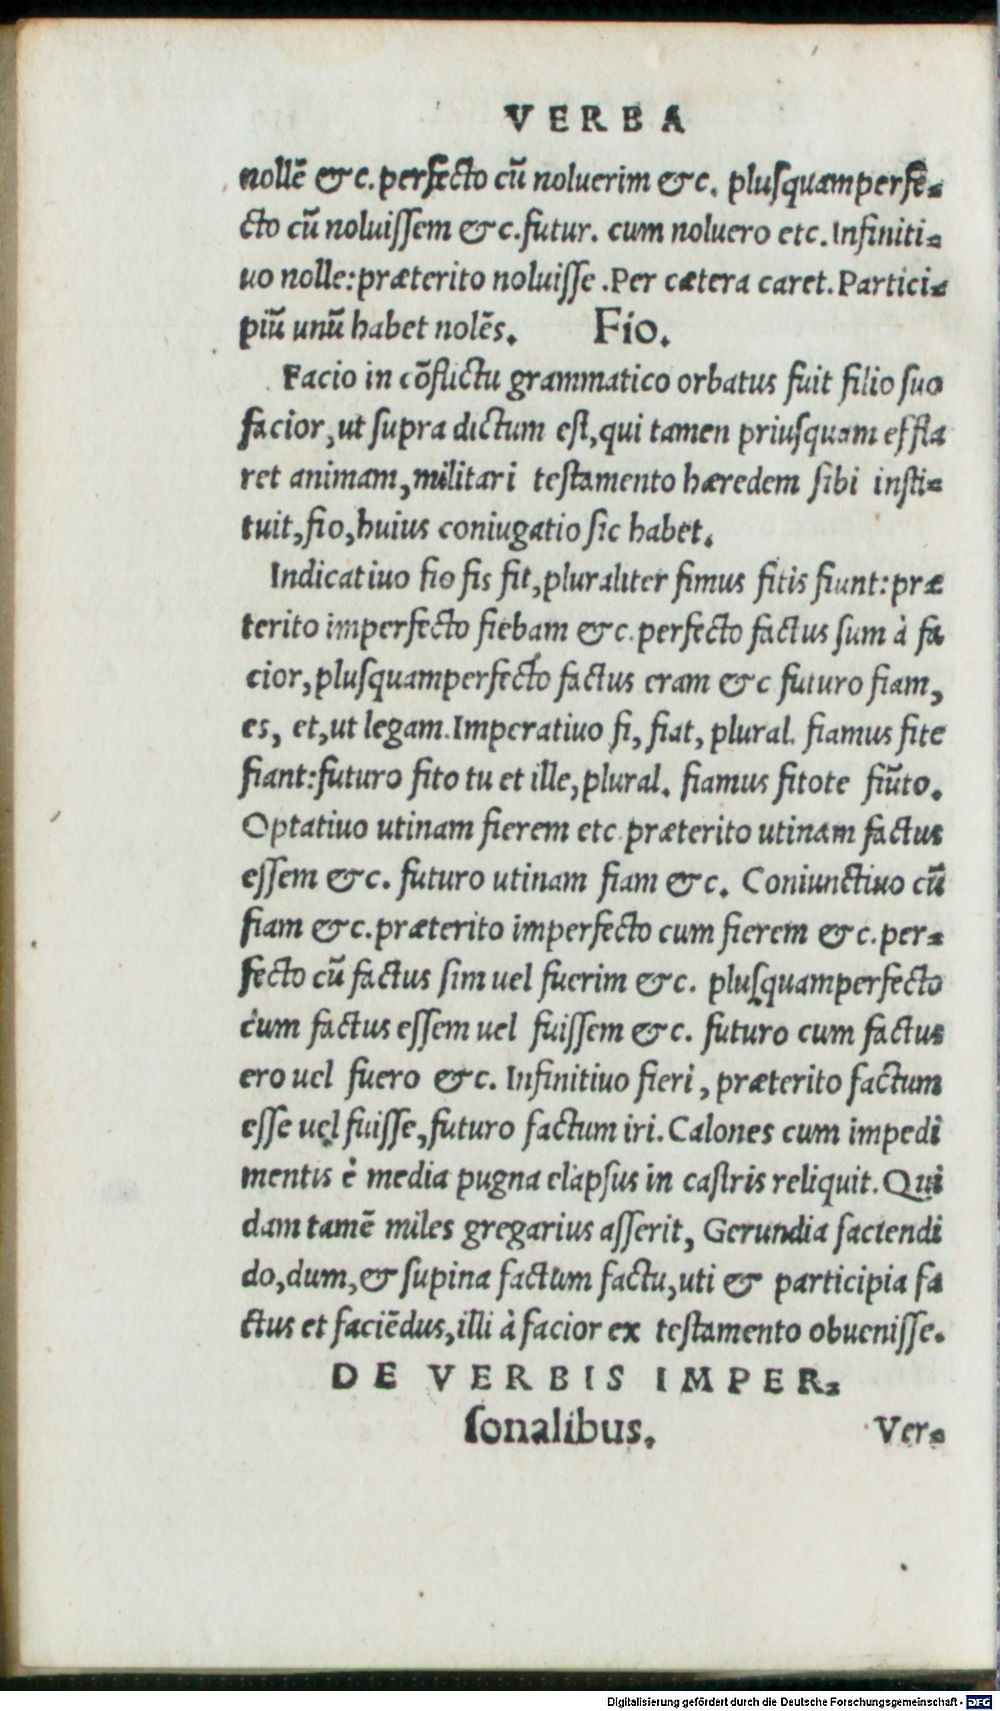 VERBA
nollẽ &c. perfecto cũ noluerim &c. plusquamperfe-
cto cũ noluissem &c. futur. cum noluero etc. Infiniti-
uo nolle: præterito noluisse. Per cætera caret. Partici-
piũ unũ habet nolẽs. Fio.
Facio in cõflictu grammatico orbatus fuit filio suo
facior, ut supra dictum est, qui tamen priusquam effla
ret animam, militari testamento hæredem sibi insti-
tuit, fio, huius coniugatio sic habet.
Indicatiuo fio fis fit, pluraliter fimus fitis fiunt: præ
terito imperfecto fiebam &c. perfecto factus sum à fa
cior, plusquamperfecto factus eram &c futuro fiam,
es, et, ut legam. Imperatiuo fi, fiat, plural. fiamus fite
fiant: futuro fito tu et ille, plural. fiamus fitote fiũto.
Optatiuo utinam fierem etc. præterito utinam factus
essem &c. futuro utinam fiam &c. Coniunctiuo cũ
fiam &c. præterito imperfecto cum fierem &c. per-
fecto cũ factus sim uel fuerim &c. plusquamperfecto
cum factus essem uel fuissem &c. futuro cum factus
ero uel fuero &c. Infinitiuo fieri, præterito factum
esse uel fuisse, futuro factum iri. Calones cum impedi
mentis è media pugna elapsus in castris reliquit. Qui
dam tamẽ miles gregarius asserit, Gerundia faciendi
do, dum, & supina factum factu, uti & participia fa
ctus et faciẽdus, illi à facior ex testamento obuenisse.
DE VERBIS IMPER-
sonalibus. Ver-
Digitalisierung gefördert durch die Deutsche Forschungsgemeinschaft - DFG